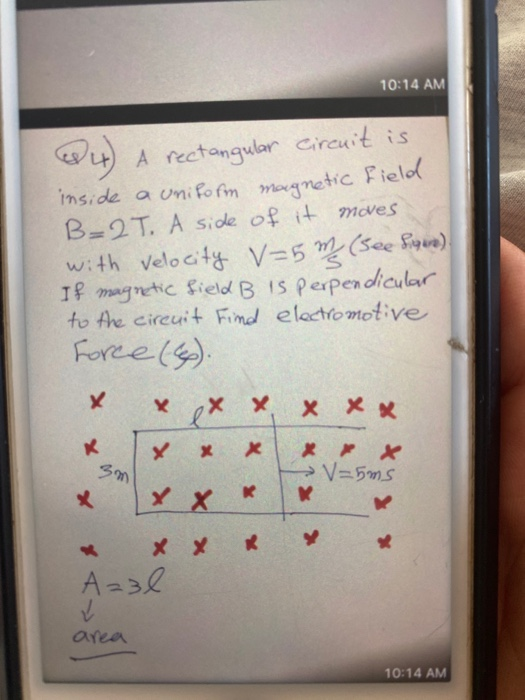 10:14 AM
Q4) A rectangular circuit is
inside a uniform magnetic field
B=2T. A side of it moves
with velocity V=5 m/s (see figure).
If magnetic field B is perpendicular
to the circuit Find electromotive
Force (ξ).
l
3m
V=5ms
A=3l
↓
area
10:14 AM